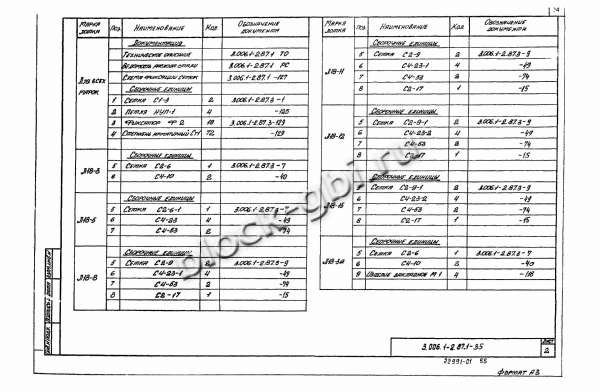 34
МАРКА ЛОТКА | ПОЗ. | НАИМЕНОВАНИЕ | КОЛ. | ОБОЗНАЧЕНИЕ ДОКУМЕНТА
ДЛЯ ВСЕХ МАРОК
ДОКУМЕНТАЦИЯ
ТЕХНИЧЕСКОЕ ОПИСАНИЕ 3.006.1-2.87.1 ТО
ВЕДОМОСТЬ РАСХОДА СТАЛИ 3.006.1-2.87.1 РС
СХЕМА ФИКСАЦИИ СЕТОК 3.006.1-2.87.1 -127
СБОРОЧНЫЕ ЕДИНИЦЫ
1 СЕТКА С1-3 2 3.006.1-2.87.3 -1
2 ПЕТЛЯ 4 -125
3 ФИКСАТОР Ф 2 3.006.1-2.87.3-123
4 СТЕРЖЕНЬ АРМАТУРНЫЙ СТ1 72 -129
Л18-3
СБОРОЧНЫЕ ЕДИНИЦЫ
5 СЕТКА С2-6 1 3.006.1-2.87.3 -7
6 С4-10 2 -40
Л18-5
СБОРОЧНЫЕ ЕДИНИЦЫ
5 СЕТКА С2-6-1 1 3.006.1-2.87.3 -7
6 С4-23 4 -49
7 С4-53 2 -74
Л18-8
СБОРОЧНЫЕ ЕДИНИЦЫ
5 СЕТКА С2-9 2 3.006.1-2.87.3-9
6 С4-23-1 4 -49
7 С4-53 2 -74
8 С2-17 1 -15
МАРКА ЛОТКА | ПОЗ. | НАИМЕНОВАНИЕ | КОЛ. | ОБОЗНАЧЕНИЕ ДОКУМЕНТА
Л18-11
СБОРОЧНЫЕ ЕДИНИЦЫ
5 СЕТКА С2-9 2 3.006.1-2.87.3-9
6 С4-23-1 4 -49
7 С4-53 2 -74
8 С2-17 1 -15
Л18-12
СБОРОЧНЫЕ ЕДИНИЦЫ
5 СЕТКА С2-9-1 2 3.006.1-2.87.3-9
6 С4-23-2 4 -49
7 С4-53 2 -74
8 С2-17 1 -15
Л18-15
СБОРОЧНЫЕ ЕДИНИЦЫ
5 СЕТКА С2-9-1 2 3.006.1-2.87.3-9
6 С4-23-2 4 -49
7 С4-53 2 -74
8 С2-17 1 -15
СБОРОЧНЫЕ ЕДИНИЦЫ
5 СЕТКА С2-6 1 3.006.1-2.87.3 -7
6 С4-10 2 -40
9 ИЗДЕЛИЕ ЗАКЛАДНОЕ М 1 4 -118
3.006.1-2.87.1-35
ЛИСТ
2
22991-01 35
ФОРМАТ А3
glock-gbi.ru